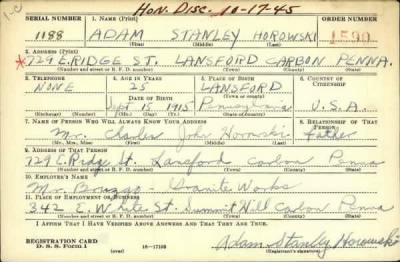 Hon. Disc. 10-17-45
1-C
SERIAL NUMBER 1. NAME (Print) ORDER NUMBER
1188 ADAM STANLEY HOROWSKI 1590
(First) (Middle) (Last)
2. ADDRESS (Print)
*729 E. RIDGE ST. LANSFORD CARBON PENNA.
(Number and street or R. F. D. number) (Town) (County) (State)
3. TELEPHONE 4. AGE IN YEARS 5. PLACE OF BIRTH 6. COUNTRY OF CITIZENSHIP
NONE 25 LANSFORD
DATE OF BIRTH
Sept 15 1915 Pennsylvania U.S.A.
(Mo.) (Day) (Yr.) (State or country)
7. NAME OF PERSON WHO WILL ALWAYS KNOW YOUR ADDRESS 8. RELATIONSHIP OF THAT PERSON
Mr. Charles John Horowski Father
(Mr., Mrs., Miss) (First) (Middle) (Last)
9. ADDRESS OF THAT PERSON
729 E. Ridge St. Lansford Carbon Penna
(Number and street or R. F. D. number) (Town) (County) (State)
10. EMPLOYER'S NAME
Mr. - Granite Works
11. PLACE OF EMPLOYMENT OR BUSINESS
342 E. White St. Summit Hill Carbon Penna
(Number and street or R. F. D. number) (Town) (County) (State)
I AFFIRM THAT I HAVE VERIFIED ABOVE ANSWERS AND THAT THEY ARE TRUE.
REGISTRATION CARD
D. S. S. Form 1 (over) 16-17105 Adam Stanley Horowski
(Registrant's signature)